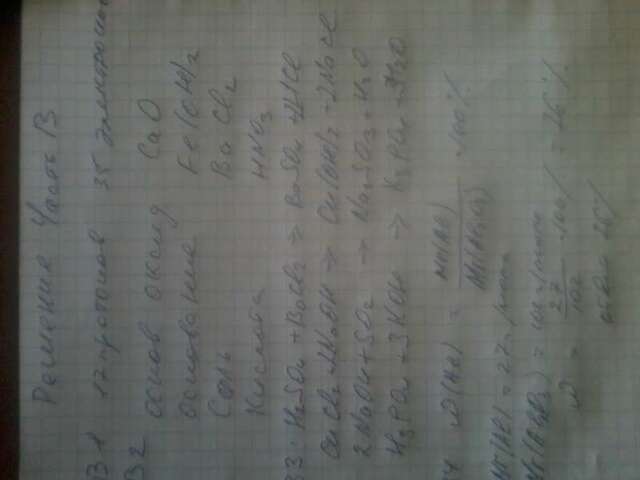 Решение Часть В
В1 17 протонов 35 электронов
В2 основ оксид CaO
основание Fe(OH)2
соль BaCl2
кислота HNO3
В3. H2SO4 + BaCl2 → BaSO4 + HCl
CuCl2 + NaOH → Cu(OH)2 + 2NaCl
2NaOH + SO2 → Na2SO3 + H2O
H3PO4 + 3KOH → K3PO4 + 3H2O
ω(Al) = Mr(Al) / Mr(Al2O3) · 100%
Mr(Al) = 27 г/моль
Mr(Al2O3) = 102 г/моль
ω = 27 / 102 · 100% = 26%